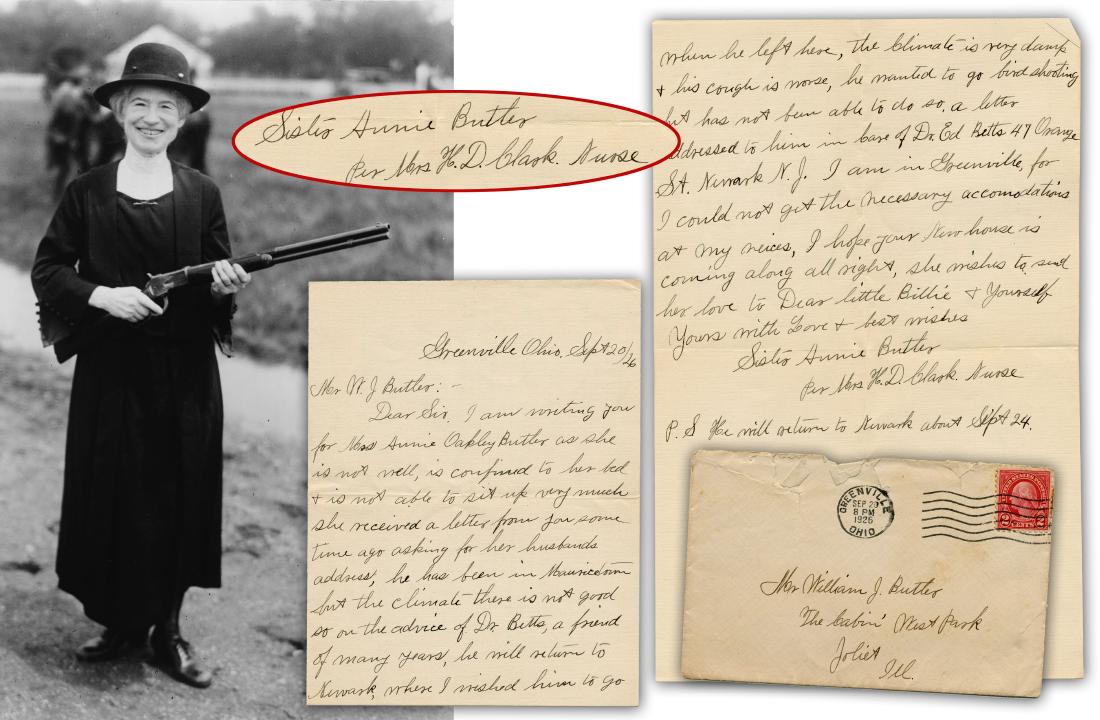 Sister Annie Butler
Per Mrs H.D. Clark. Nurse
Greenville Ohio, Sept 20/26
Mr W. J Butler: -
Dear Sir, I am writing you
for Miss Annie Oakley Butler as she
is not well, is confined to her bed
+ is not able to sit up very much
she received a letter from you some
time ago asking for her husbands
address, he has been in Mauricetown
but the climate there is not good
so on the advice of Dr. Betts, a friend
of many years, he will return to
Newark, where I wished him to go
when he left here, the Climate is very damp
+ his cough is worse, he wanted to go bird shooting
but has not been able to do so, a letter
addressed to him in care of Dr. Ed Betts 47 Orange
St. Newark N. J. I am in Greenville, for
I could not get the necessary accomodations
at my neices, I hope your New house is
coming along all right, she wishes to send
her love to Dear little Billie + Yourself
Yours with Love + best wishes
Sister Annie Butler
Per Mrs H.D. Clark. Nurse
P. S He will return to Newark about Sept 24.
GREENVILLE
SEP 20
8 PM
1926
OHIO
UNITED STATES POSTAGE
2 CENTS 2
Mr William J. Butler
The Cabin' West Park
Joliet
Ill.